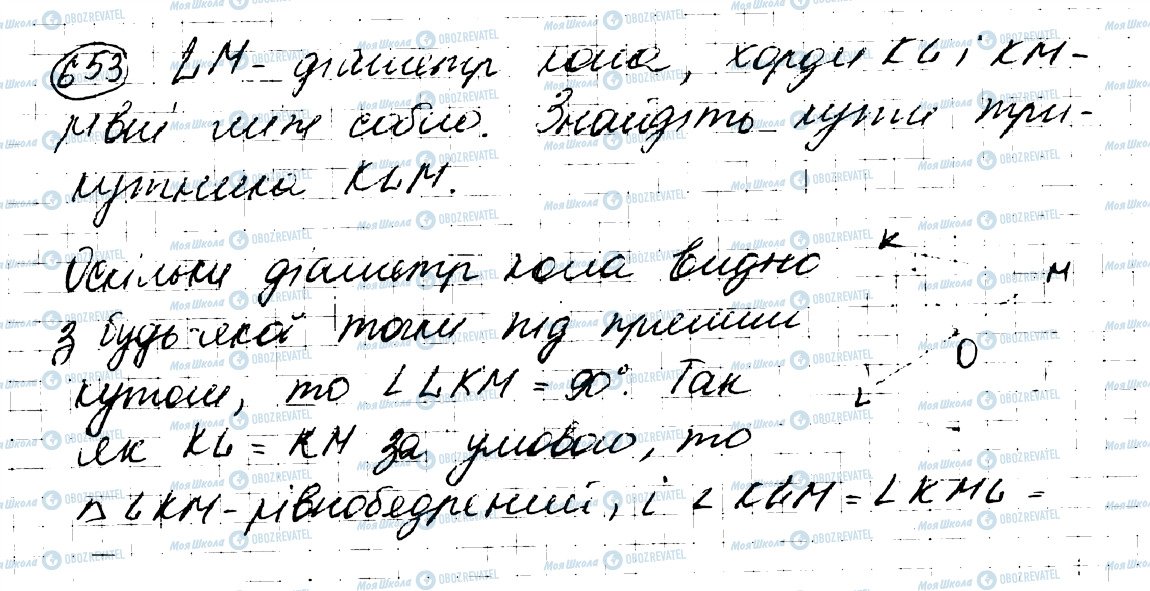 653 LM - діаметр кола, хорди KL і KM -
рівні між собою. Знайдіть кути три-
кутника KLM.
Оскільки діаметр кола видно
з будь-якої точки під прямим
кутом, то ∠LKM = 90°. Так
як KL = KM за умовою, то
△LKM - рівнобедрений, і ∠KLM = ∠KML =
K
M
O
L